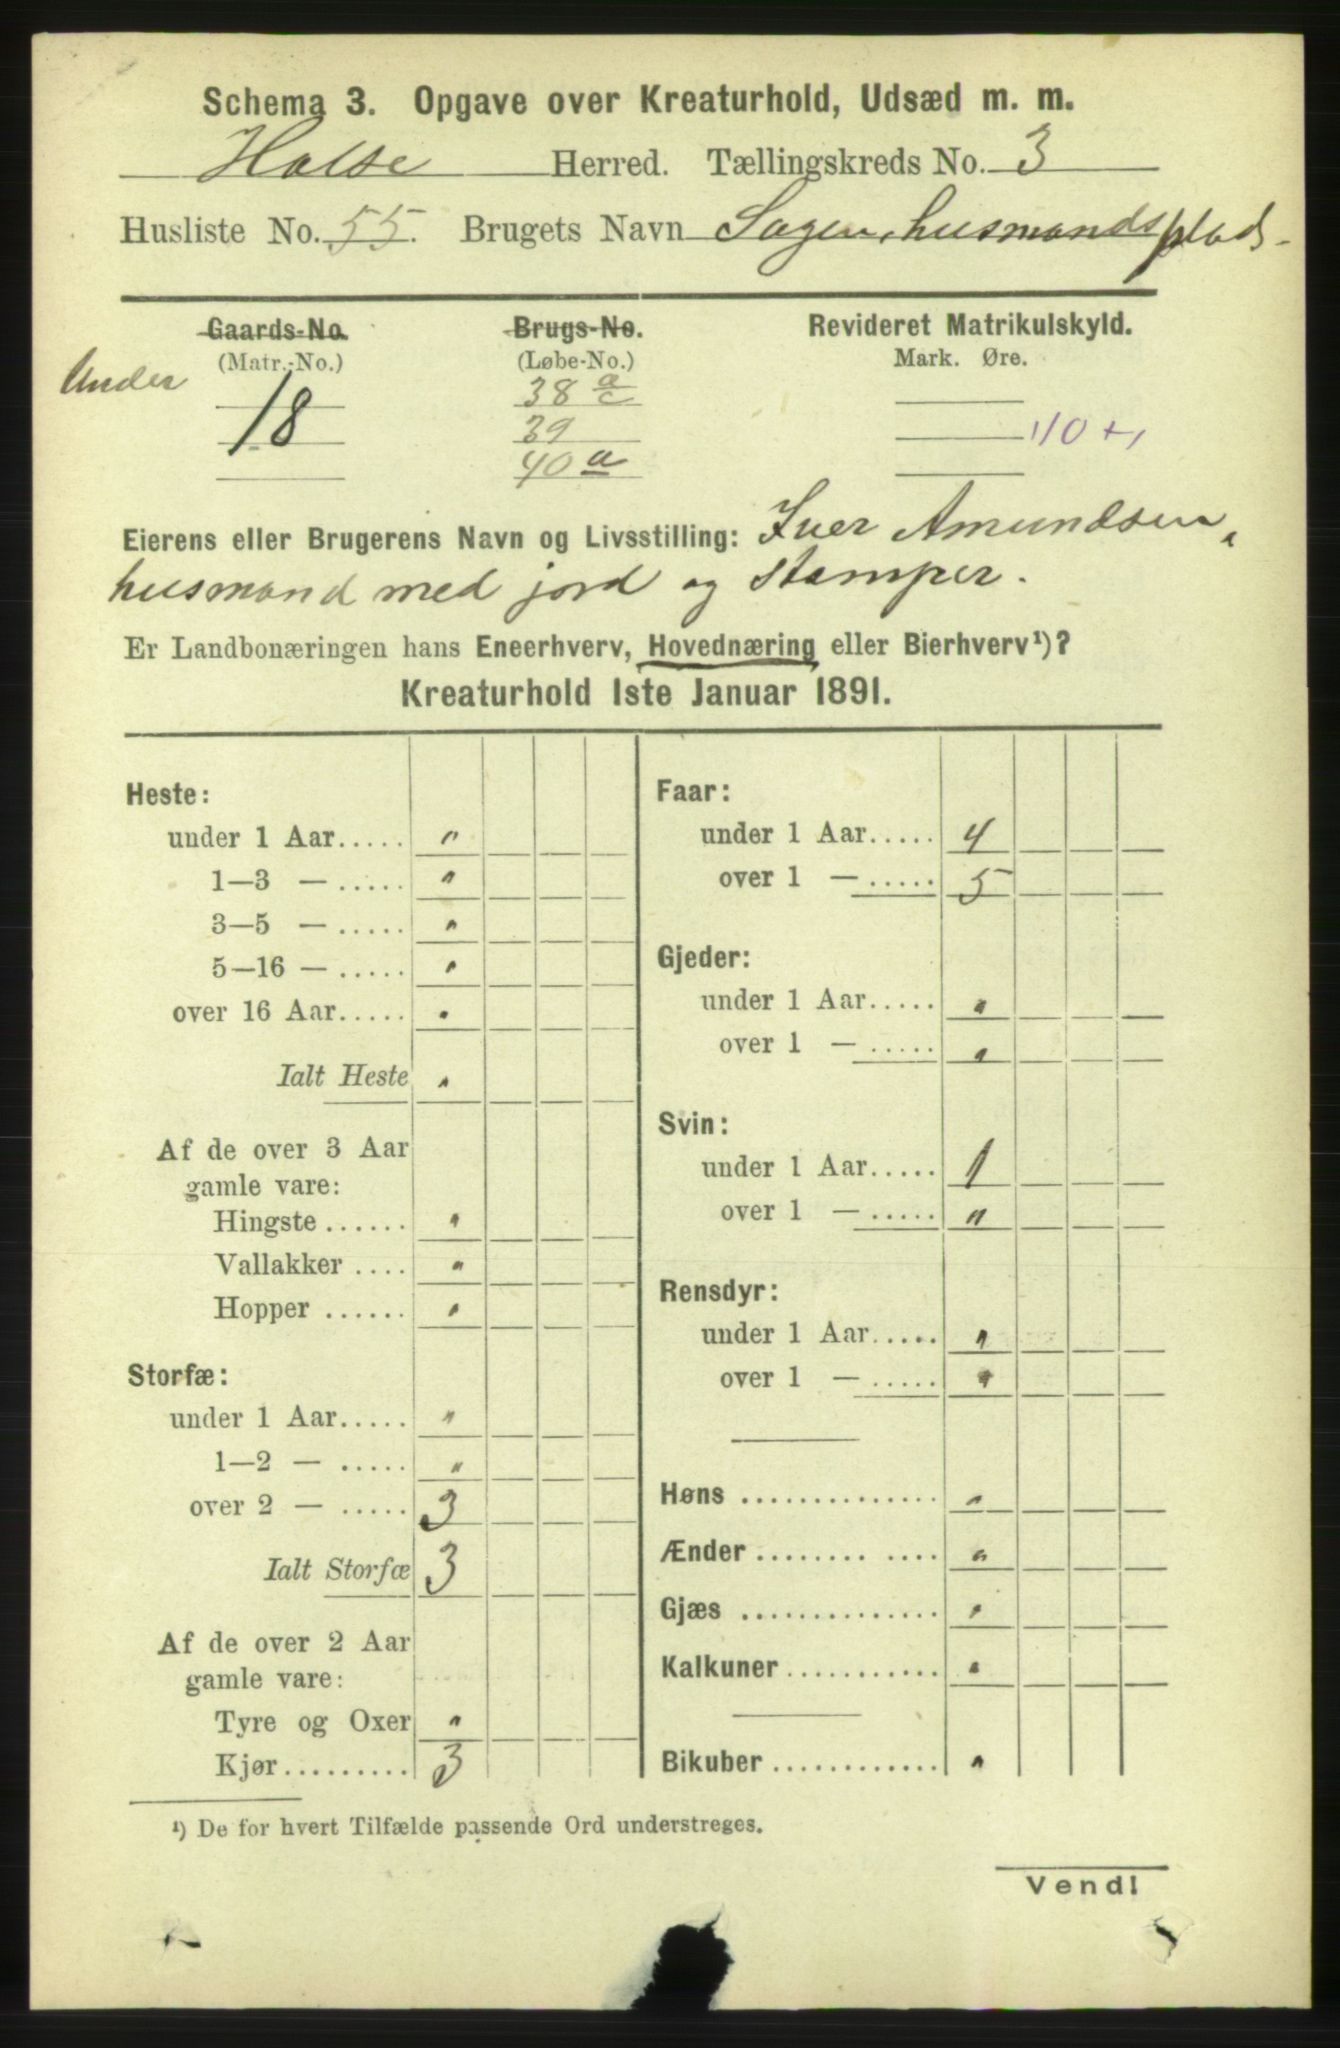 Schema 3. Opgave over Kreaturhold, Udsæd m. m.
Halse Herred. Tællingskreds No. 3
Husliste No. 55. Brugets Navn Sagen, husmandsplads
Gaards-No. Brugs-No. Revideret Matrikulskyld.
(Matr.-No.) (Løbe-No.) Mark. Øre.
Under 38 a/c
18 39 10 +
40 a
Eierens eller Brugerens Navn og Livsstilling: Iver Amundsen,
husmand med jord og stamper.
Er Landbonæringen hans Eneerhverv, Hovednæring eller Bierhverv¹)?
Kreaturhold 1ste Januar 1891.
Heste:
under 1 Aar..... "
1—3 — ..... "
3—5 — ..... "
5—16 — ..... "
over 16 Aar..... "
Ialt Heste "
Af de over 3 Aar
gamle vare:
Hingste ...... "
Vallakker .... "
Hopper ...... "
Storfæ:
under 1 Aar..... "
1—2 — ..... "
over 2 — ..... 3
Ialt Storfæ 3
Af de over 2 Aar
gamle vare:
Tyre og Oxer "
Kjør......... 3
Faar:
under 1 Aar..... 4
over 1 — ..... 5
Gjeder:
under 1 Aar..... "
over 1 — ..... "
Svin:
under 1 Aar..... 1
over 1 — ..... "
Rensdyr:
under 1 Aar..... "
over 1 — ..... "
Høns .............. "
Ænder ........ .... "
Gjæs .............. "
Kalkuner ........... "
Bikuber ............ "
¹) De for hvert Tilfælde passende Ord understreges.
Vend!